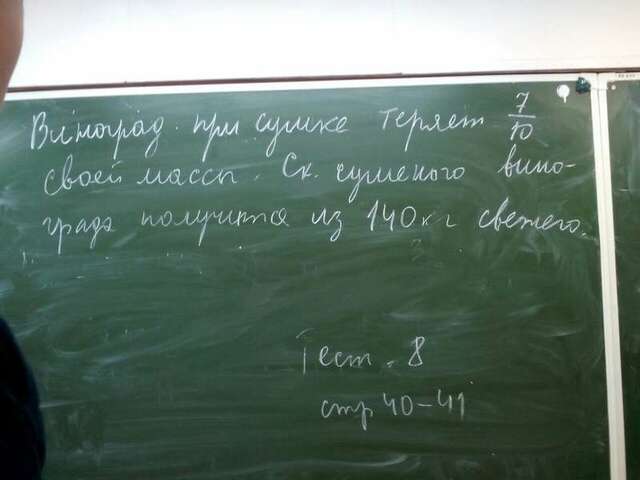 Виноград при сушке теряет 7/10
своей массы. Ск. сушеного вино-
града получится из 140 кг свежего.
Тест. 8
стр 40-41